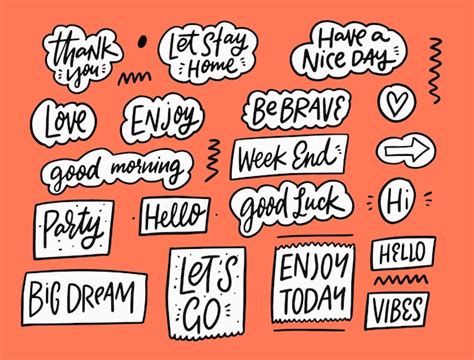 thank
you
Let Stay
Home
Have a
Nice Day
Love
Enjoy
Be BRAVE
good morning
Week End
Hi
Party
Hello
good Luck
BIG DREAM
LET'S
GO
ENJOY
TODAY
HELLO
VIBES